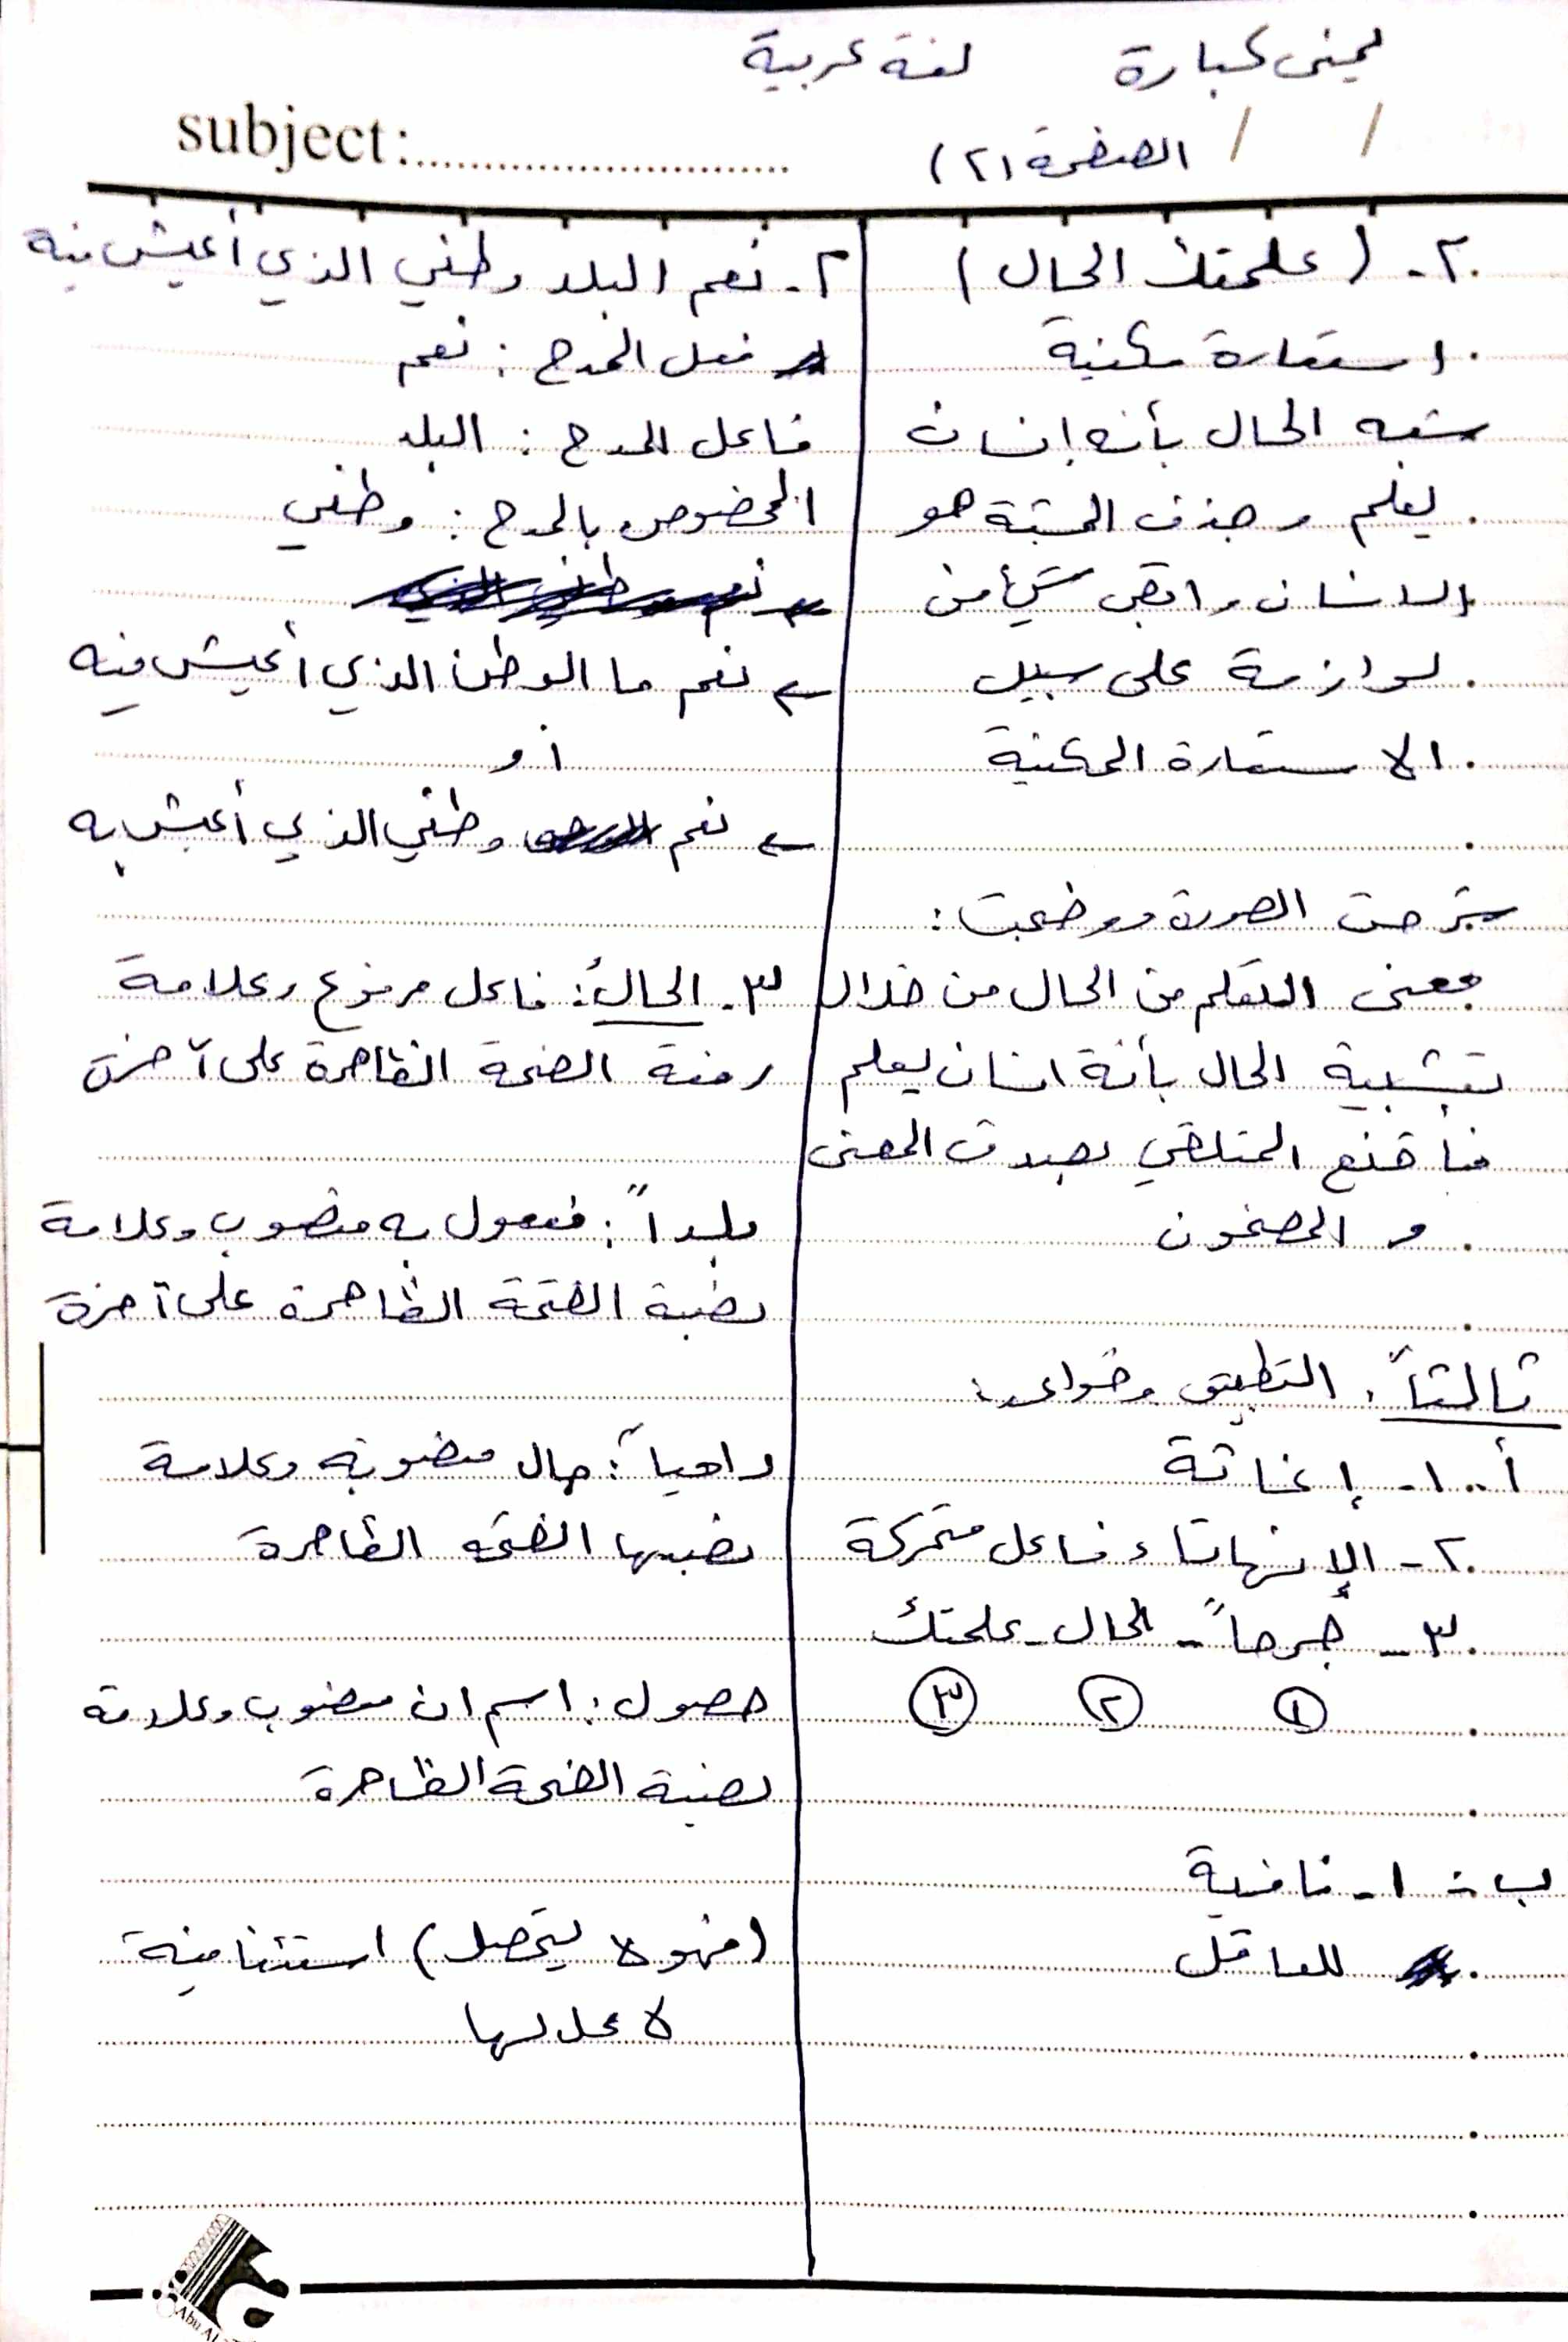 يمنى كبارة لغة عربية
subject:
الصفحة (٢)
٢. (علمتك الحال)
استعارة مكنية
شبه الحال بأنه إنسان
يعلم وحذف المشبة هو
الانسان وابقى شيء من
لوازمة على سبيل
الاستعارة المكنية
شرحت الصورة ووضحت:
معنى التعلم من الحال من خلال
تشبية الحال بأنة انسان يعلم
فأقنع المتلقي بصدق المعنى
و المضمون
ثالثاً: التطبيق وقواعد:
أ.. ١- إغاثة
٢- الإنهاتاء فاعل متحركة
٣- جرحاً - الحال - علمتك
١ ٢ ٣
ب: ١- نافية
للعاقل
٢- نعم البلد وطني الذي أعيش فية
فعل المدح: نعم
فاعل المدح: البلد
المخصوص بالمدح: وطني
نعم ما الوطن الذي أعيش فيه
أو
نعم وطني الذي أعيش به
٣- الحالُ: فاعل مرفوع وعلامة
رفعة الضمة الظاهرة على آخرة
بلداً: مفعول به منصوب وعلامة
نصبة الفتحة الظاهرة على آخرة
راهباً: حال منصوبة وعلامة
نصبها الفتحه الظاهرة
حصول: اسم ان منصوب وعلامة
نصبة الفتحة الظاهرة
(فهو لا يتحصل) استئنافية
لا محل لها